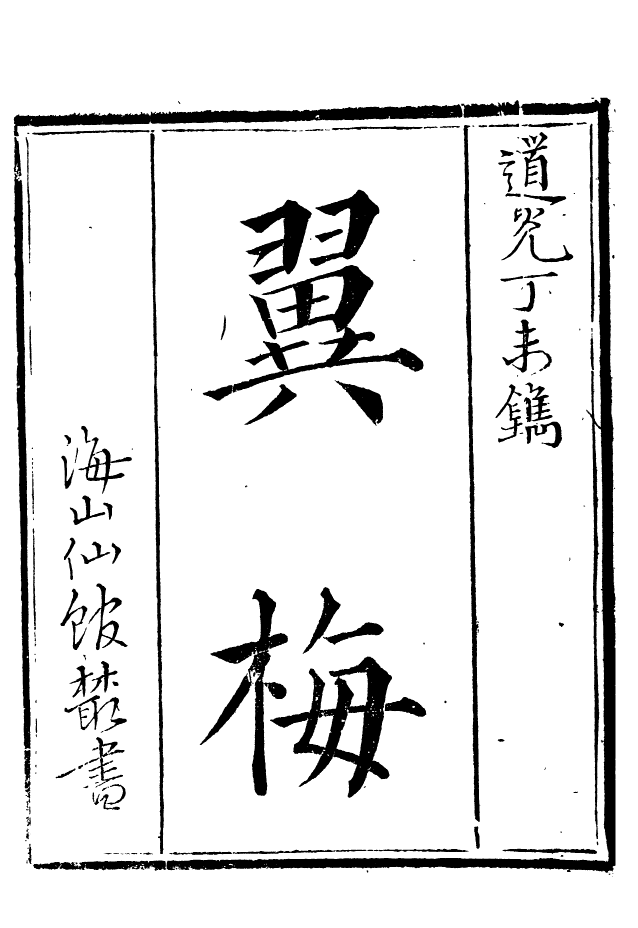 道光丁未鐫
翼梅
海山仙館叢書